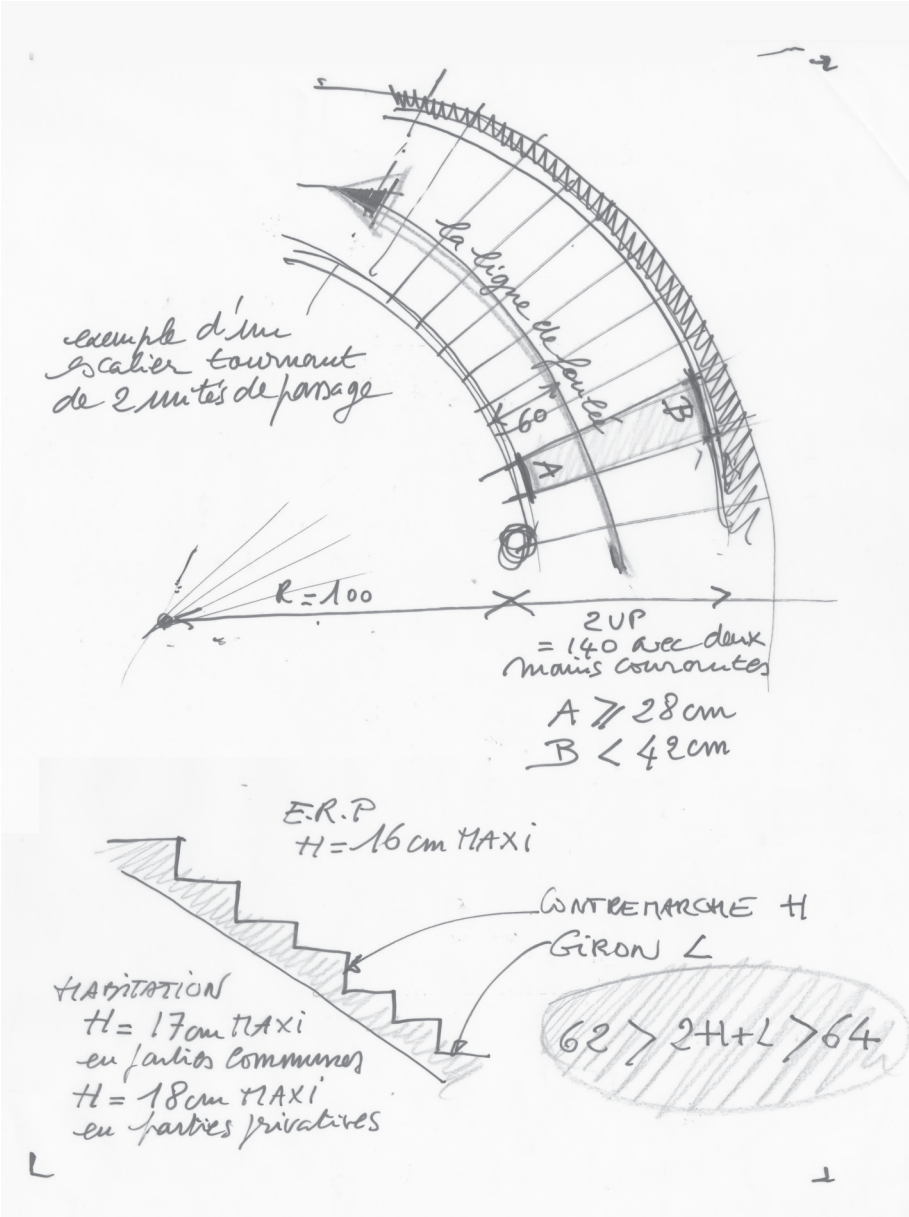 la ligne de foulée
exemple d'un
escalier tournant
de 2 unités de passage
60
A
B
R=100
2UP
= 140 avec deux
mains courantes
A ⩾ 28 cm
B < 42 cm
E.R.P
H = 16 cm MAXi
CONTREMARCHE H
GiRON L
HABITATION
H = 17 cm MAXi
en parties communes
H = 18 cm MAXi
en parties privatives
62 > 2H+L > 64